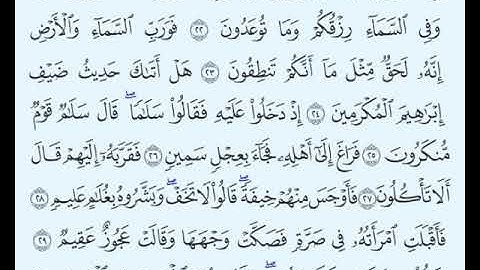 وَفِي ٱلسَّمَآءِ رِزْقُكُمْ وَمَا تُوعَدُونَ ٢٢ فَوَرَبِّ ٱلسَّمَآءِ وَٱلْأَرْضِ
إِنَّهُۥ لَحَقٌّ مِّثْلَ مَآ أَنَّكُمْ تَنطِقُونَ ٢٣ هَلْ أَتَىٰكَ حَدِيثُ ضَيْفِ
إِبْرَٰهِيمَ ٱلْمُكْرَمِينَ ٢٤ إِذْ دَخَلُوا۟ عَلَيْهِ فَقَالُوا۟ سَلَٰمًا ۖ قَالَ سَلَٰمٌ قَوْمٌ
مُّنكَرُونَ ٢٥ فَرَاغَ إِلَىٰٓ أَهْلِهِۦ فَجَآءَ بِعِجْلٍ سَمِينٍ ٢٦ فَقَرَّبَهُۥٓ إِلَيْهِمْ قَالَ
أَلَا تَأْكُلُونَ ٢٧ فَأَوْجَسَ مِنْهُمْ خِيفَةً ۖ قَالُوا۟ لَا تَخَفْ ۖ وَبَشَّرُوهُ بِغُلَٰمٍ عَلِيمٍ ٢٨
فَأَقْبَلَتِ ٱمْرَأَتُهُۥ فِي صَرَّةٍ فَصَكَّتْ وَجْهَهَا وَقَالَتْ عَجُوزٌ عَقِيمٌ ٢٩